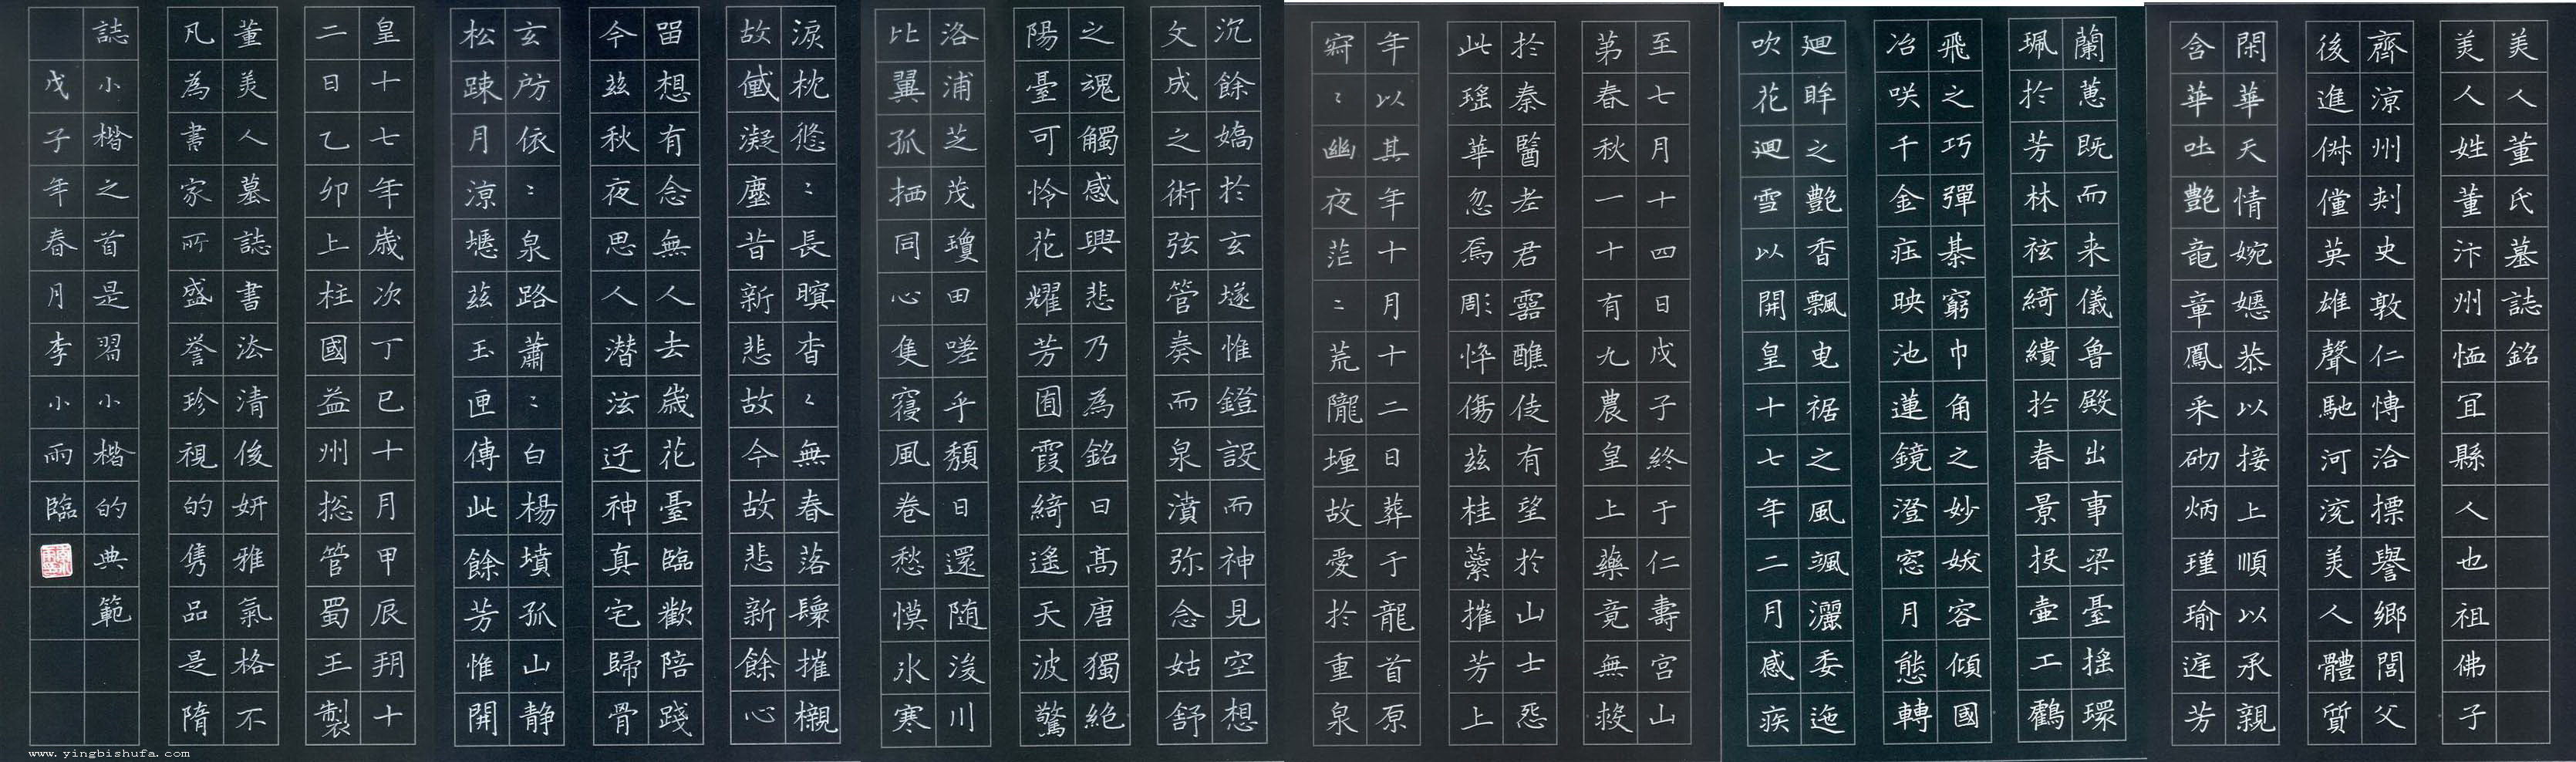 美人董氏墓誌銘
美人姓董汴州恤冝縣人也祖佛子
齊涼州刾史敦仁博洽摽譽鄉閭父
後進俶儻英雄聲馳河渷美人體質
閑華天情婉嫕恭以接上順以承親
含華吐艷竜章鳳采砌炳瑾瑜庭芳
蘭蕙既而来儀魯殿出事梁臺搖環
珮於芳林袨綺繢於春景投壷工鶴
飛之巧彈棊窮巾角之妙妭容傾國
冶咲千金庄映池蓮鏡澄窓月態轉
廻眸之艷香飄曳裾之風颯灑委迤
吹花廻雪以開皇十七年二月感疾
至七月十四日戊子終于仁壽宮山
第春秋一十有九農皇上藥竟無救
於秦醫老君靈醮徒有望於山士怨
此瑤華忽焉彫悴傷茲桂蘂摧芳上
年以其年十月十二日葬于龍首原
寂〻幽夜茫〻荒隴埋故愛於重泉
沉餘嬌於玄墜惟鐙設而神見空想
文成之術弦管奏而泉濆弥念姑舒
之魂觸感興悲乃為銘曰高唐獨絕
陽臺可怜花耀芳囿霞綺遙天波驚
洛浦芝茂瓊田嗟乎頹日還随浚川
比翼孤栖同心隻寢風卷愁慔冰寒
淚枕悠〻長瞑杳〻無春落鬟摧櫬
故黛凝塵昔新悲故今故悲新餘心
留想有念無人去歲花臺臨歡陪踐
今茲秋夜思人潛泫迂神真宅歸骨
玄房依〻泉路蕭〻白楊墳孤山静
松疎月涼瘞茲玉匣傳此餘芳惟開
皇十七年歲次丁巳十月甲辰朔十
二日乙卯上柱國益州捴管蜀王製
董美人墓誌書法清俊妍雅氣格不
凡為書家所盛譽珍視的雋品是隋
誌小楷之首是習小楷的典範
戊子年春月李小雨臨
www.yingbishufa.com